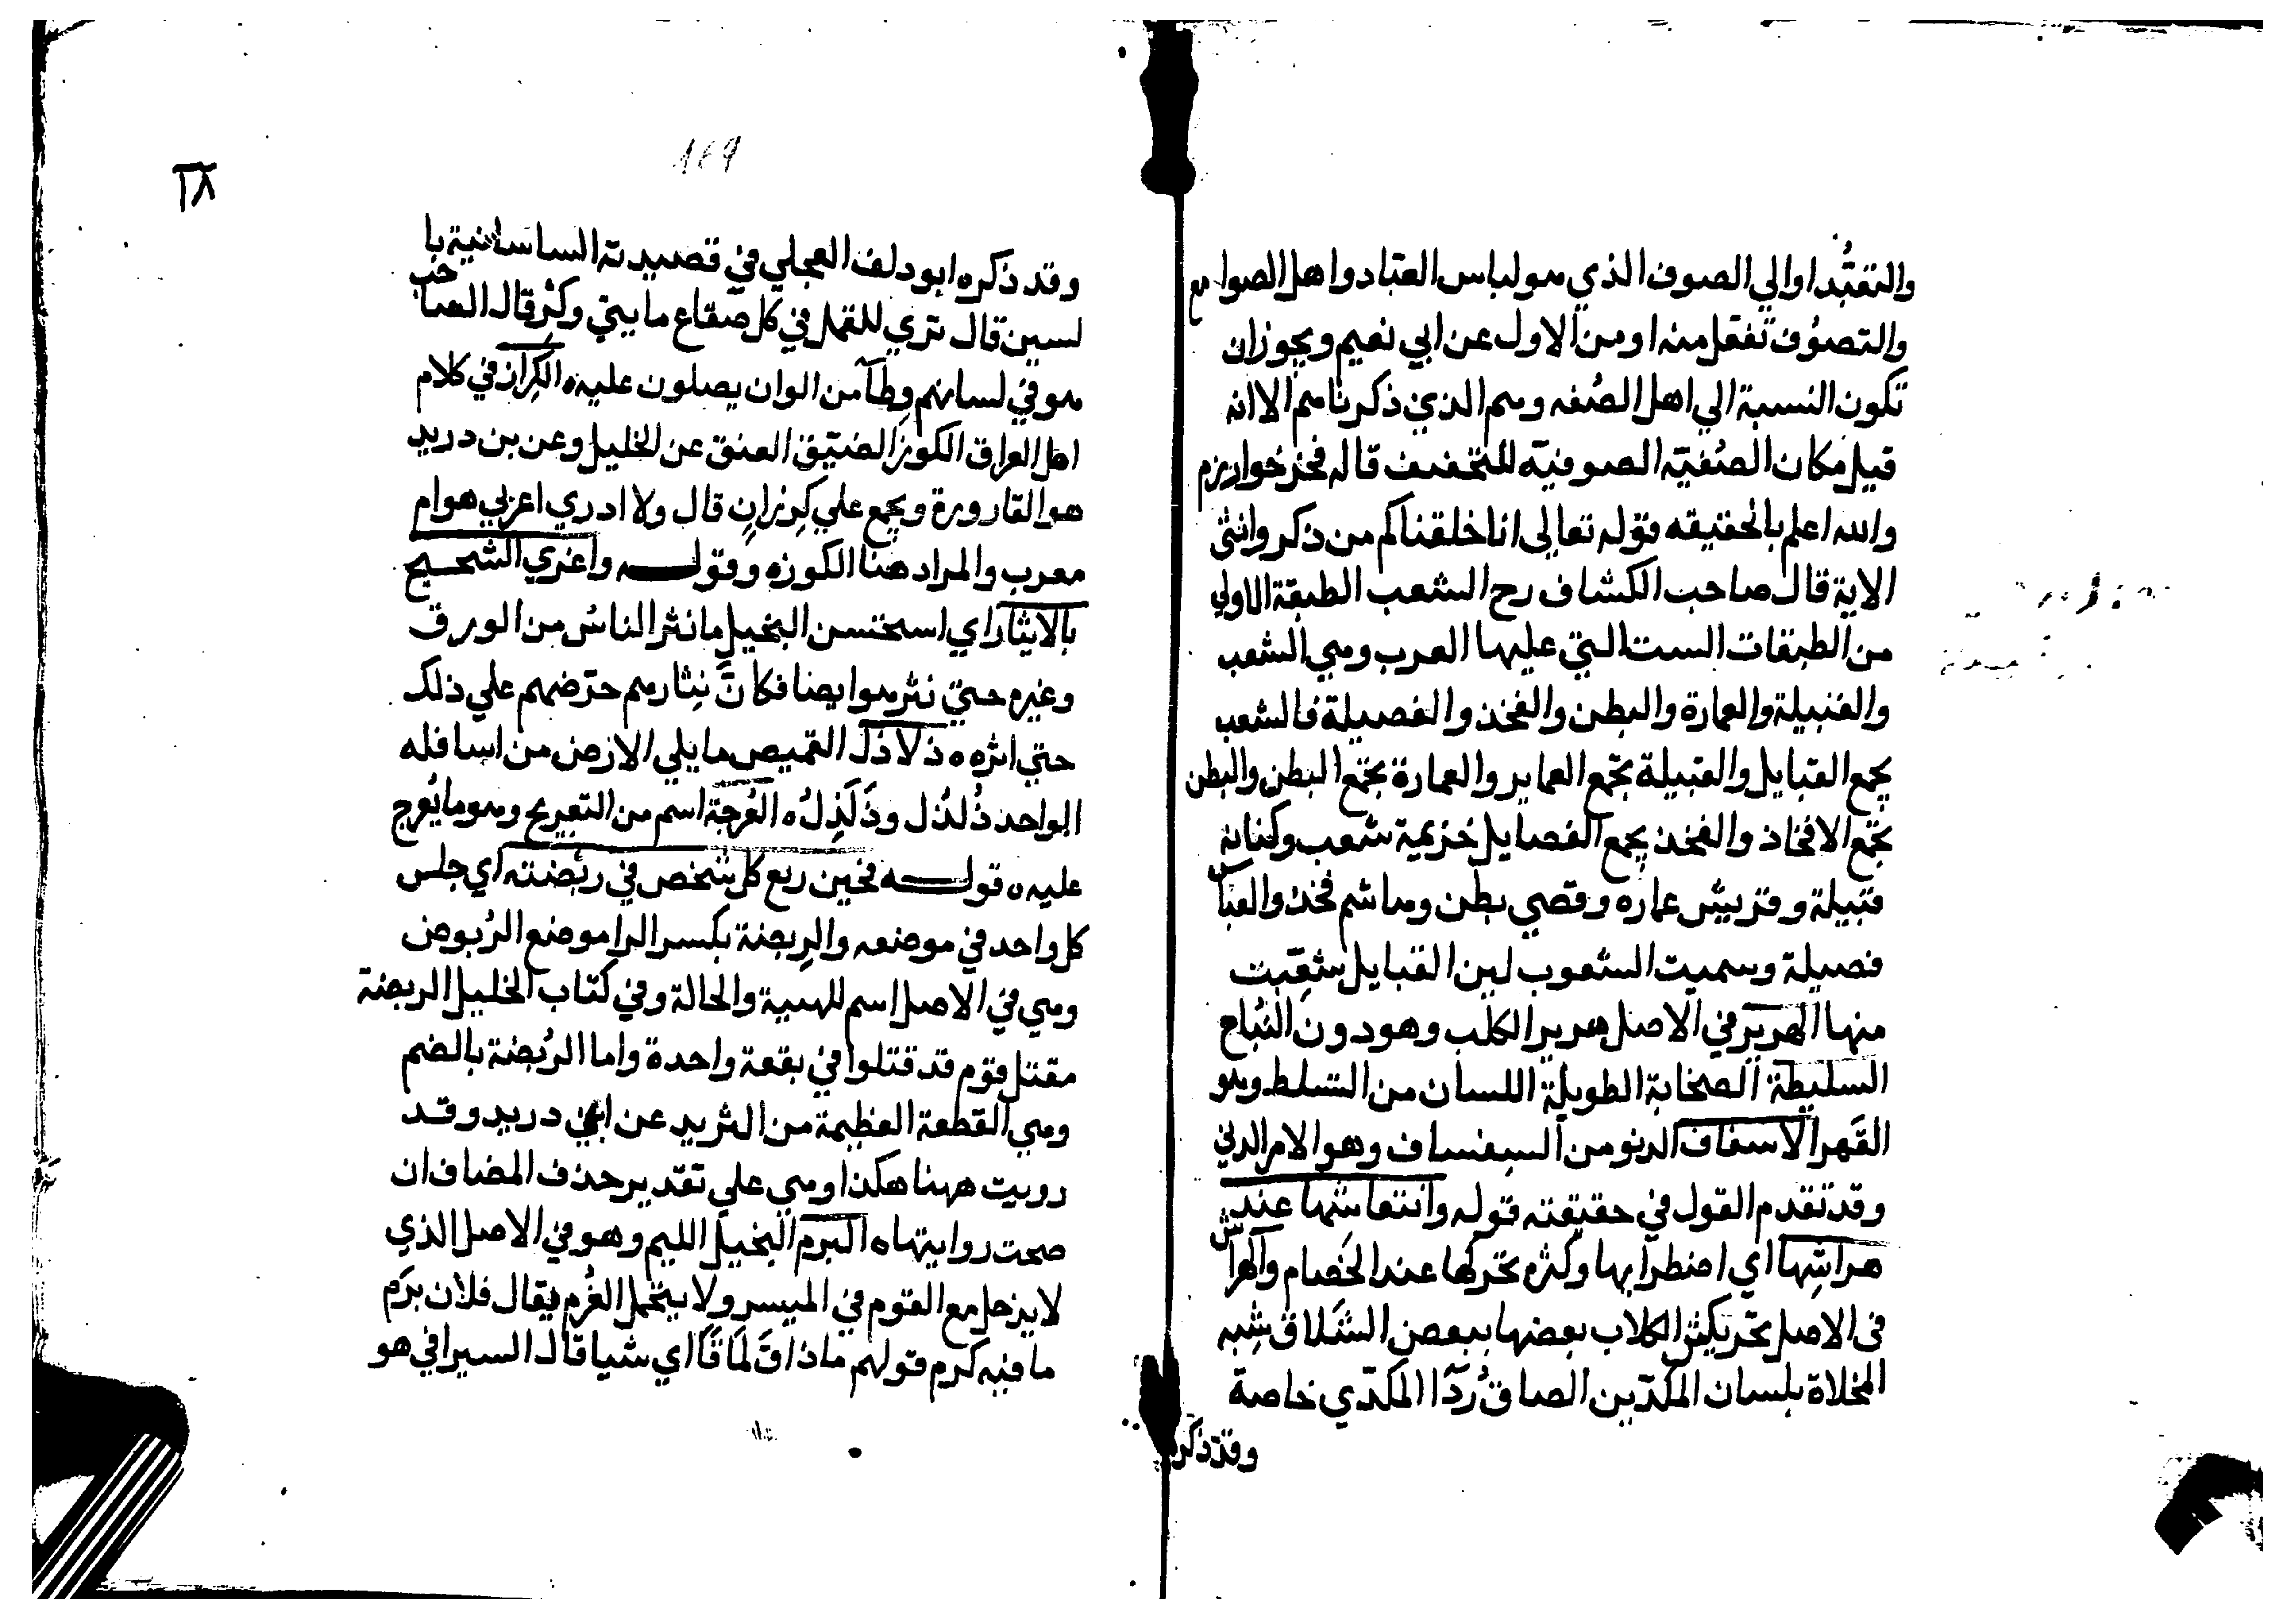 والتعبّد او الي الصوف الذي هو لباس العباد واهل الصوامع
والتصوّف تفعّل منه او من الاول عن ابي نعيم ويجوز ان
تكون النسبة الي اهل الصُفه وهم الذي ذكرناهم الا انه
قيل مكان الصُفيّه الصوفيّه للتخفيف قاله فخر خوارزم
والله اعلم بالحقيقه قوله تعالي انا خلقناكم من ذكر وانثي
الاية قال صاحب الكشاف رح الشعب الطبقة الاولي
من الطبقات الست التي عليها العرب وهي الشعب
والقبيلة والعمارة والبطن والفخذ والفصيلة فالشعب
يجمع القبايل والقبيلة تجمع العماير والعمارة تجمع البطن والبطن
تجمع الافخاذ والفخذ يجمع الفصايل خزيمة شعب وكنانة
قبيلة وقريش عماره وقصي بطن وهاشم فخذ والعباس
فصيلة وسميت الشعوب لين القبايل شعّبت
منها الهرير في الاصل هرير الكلب وهو دون النُباح
السليطة الصخابة الطويلة اللسان من التسلط وهو
القَهر الاسفاف الدنو من السفساف وهو الامر الدني
وقد تقدم القول في حقيقته قوله وانتعاشها عند
هراشِها اي اضطرابها وكثرة تحركها عند الخصام والهراش
في الاصل تحريش الكلاب بعضها ببعض الشَلاق شِبه
المخلاة بلسان المكدّين الصاق رُدّا المكدّي خاصة
وقد ذكره
169
٢٨
وقد ذكره ابو دلف العجلي في قصيدته الساسانية با
لسين قال تري للقمل في كل صقاع ما بيتي وكثر قال الصاحب
هو في لسانهم وِطآ من الوان يصلون عليه ه الكِرَاز في كلام
اهل العراق الكوز الضيّق العنق عن الخليل وعن بن دريد
هو القارورة ويجمع علي كِرزانٍ قال ولا ادري اعربي هو ام
معرب والمراد هنا الكوزه وقولـه واغري الشحيح
بالايثار اي استحسن البخيل ما نثر الناسُ من الورق
وغيره حتي نثر هو ايضا فكانّ نِثارهم حرّضهم علي ذلك
حتي اثره ه ذلاذل القميص ما يلي الارض من اسافله
الواحد ذُلذُل وذَلَذِلُ ه العُرجَة اسم من التعريج وهو ما يُعرج
عليه ه قولـه فحين ربع كل شخص في رِبضته اي جلس
كل واحد في موضعه والرِبضة بكسر الرا موضع الرُبوض
وهي في الاصل اسم للهية والحالة وفي كتاب الخليل الربضة
مقتل قوم قد قتلوا في بقعة واحدة واما الرُبضة بالضم
وهي القطعة العظيمة من الثريد عن ابي دريد وقد
رويت ههنا هكذا وهي علي تقدير حذف المضاف ان
صحت روايتها ه البرم البخيل الليم وهو في الاصل الذي
لا يدخل مع القوم في الميسر ولا يتحمل الغُرم يقال فلان بَرَم
ما فيه كرم قولهم ما ذاقَ لَمَاقًا اي شيا قال السيرافي هو